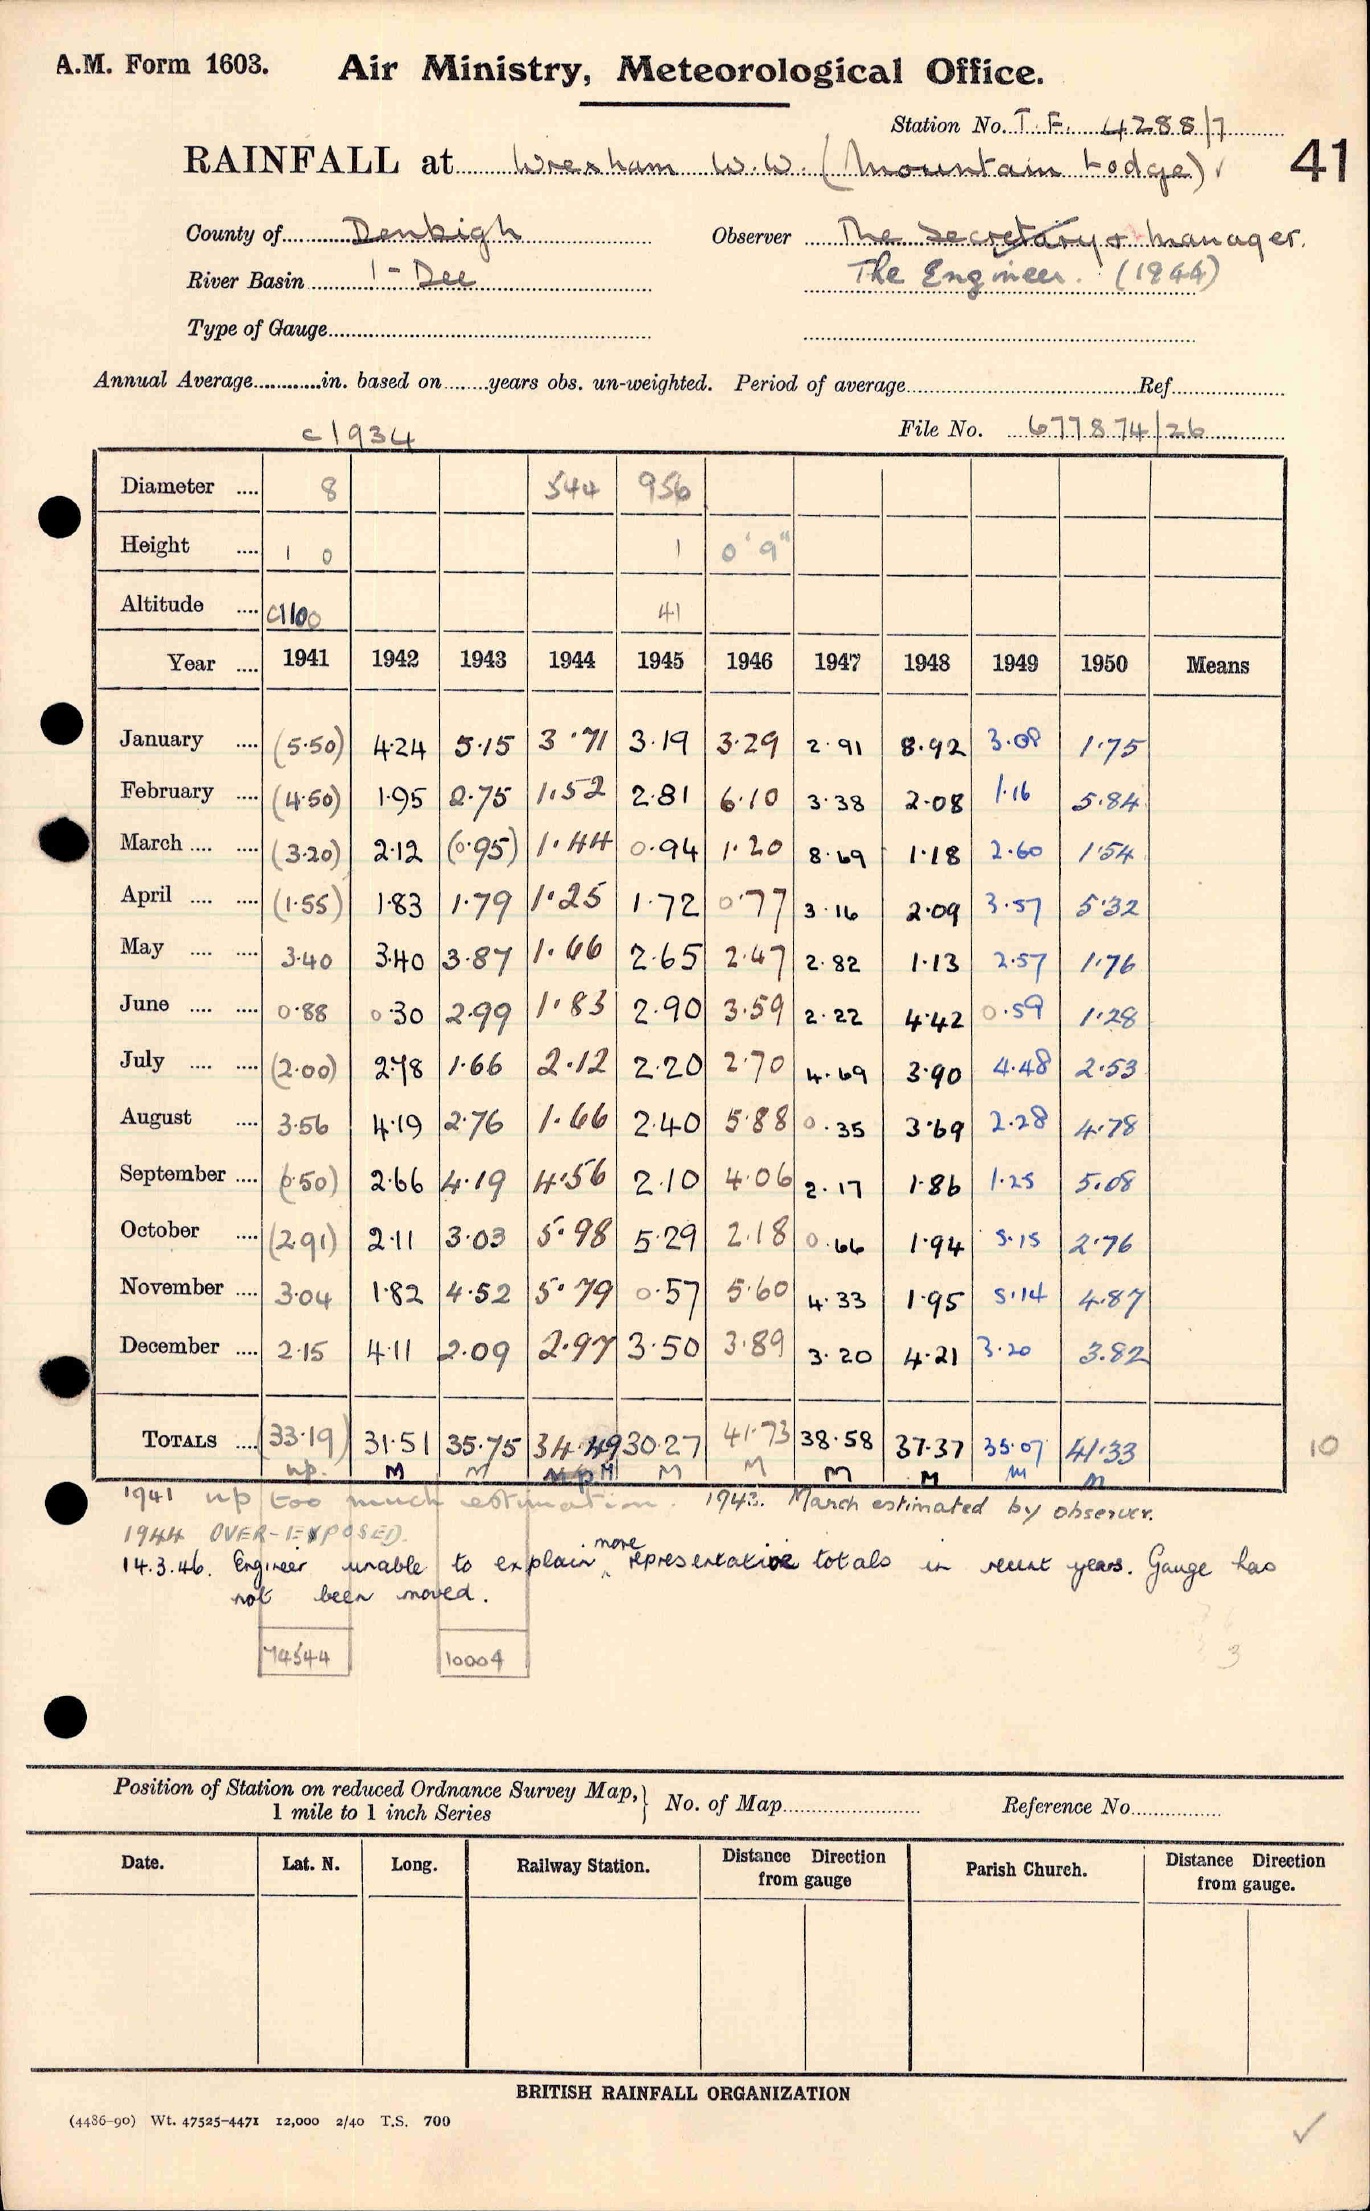 A.M. Form 1603. Air Ministry, Meteorological Office.
Station No. T.F. 4288/7
RAINFALL at Wrexham W.W. (Mountain Lodge) ✓ 41
County of Denbigh Observer The Secretary & Manager.
River Basin 1 - Dee The Engineer. (1944)
Type of Gauge
Annual Average in. based on years obs. un-weighted. Period of average Ref
c1934 File No. 677874/26
Diameter 8 544 956
Height 1 0 1 0'9"
Altitude c1100 41
Year 1941 1942 1943 1944 1945 1946 1947 1948 1949 1950 Means
January (5.50) 4.24 5.15 3.71 3.19 3.29 2.91 8.92 3.08 1.75
February (4.50) 1.95 2.75 1.52 2.81 6.10 3.38 2.08 1.16 5.84
March (3.20) 2.12 (0.95) 1.44 0.94 1.20 8.69 1.18 2.60 1.54
April (1.55) 1.83 1.79 1.25 1.72 0.77 3.16 2.09 3.57 5.32
May 3.40 3.40 3.87 1.66 2.65 2.47 2.82 1.13 2.57 1.76
June 0.88 0.30 2.99 1.83 2.90 3.59 2.22 4.42 0.59 1.28
July (2.00) 2.78 1.66 2.12 2.20 2.70 4.69 3.90 4.48 2.53
August 3.56 4.19 2.76 1.66 2.40 5.88 0.35 3.69 2.28 4.78
September (0.50) 2.66 4.19 4.56 2.10 4.06 2.17 1.86 1.25 5.08
October (2.91) 2.11 3.03 5.98 5.29 2.18 0.66 1.94 5.15 2.76
November 3.04 1.82 4.52 5.79 0.57 5.60 4.33 1.95 5.14 4.87
December 2.15 4.11 2.09 2.97 3.50 3.89 3.20 4.21 3.20 3.82
TOTALS (33.19) 31.51 35.75 34.49 30.27 41.73 38.58 37.37 35.07 41.33 10
np. M M M M M M M M M
1941 np too much estimation. 1943. March estimated by observer.
1944 OVER-EXPOSED.
14.3.46. Engineer unable to explain more representative totals in recent years. Gauge has
not been moved.
74544 10004
3
Position of Station on reduced Ordnance Survey Map, 1 mile to 1 inch Series No. of Map Reference No
Date. Lat. N. Long. Railway Station. Distance from gauge Direction Parish Church. Distance Direction from gauge.
BRITISH RAINFALL ORGANIZATION
(4486-90) Wt. 47525-4471 12,000 2/40 T.S. 700
✓